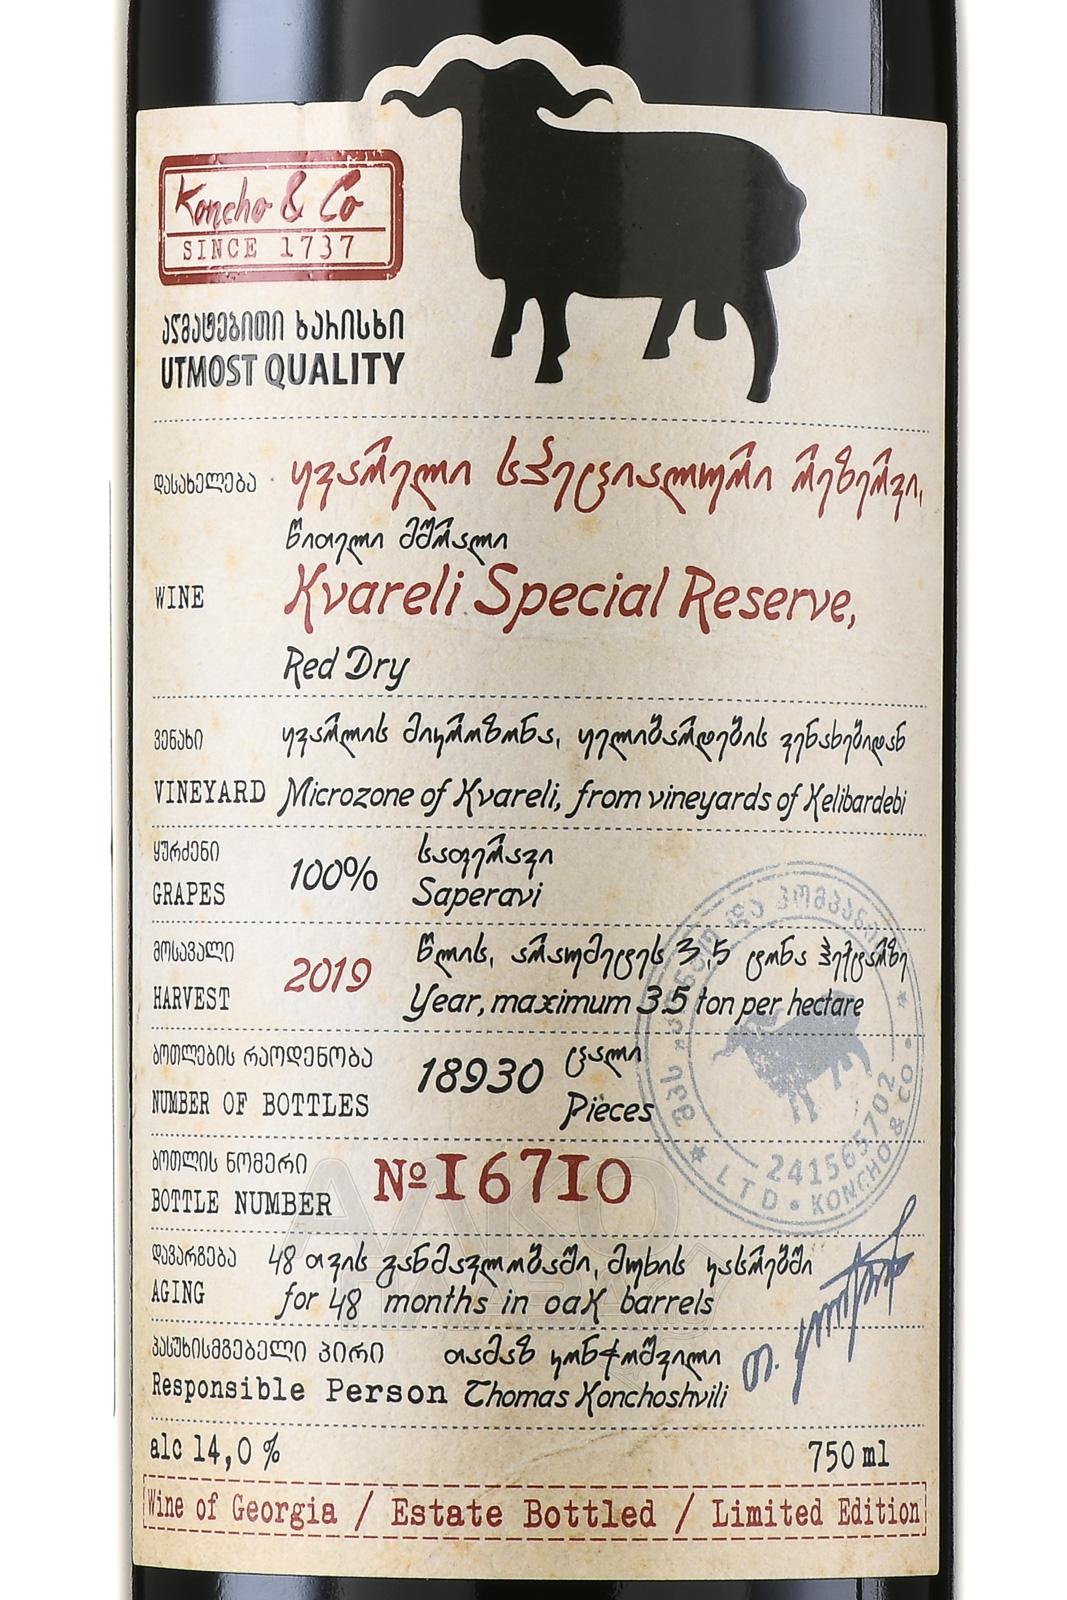 Koncho & Co
SINCE 1737
აღმატებითი ხარისხი
UTMOST QUALITY
დასახელება ყვარელი სპეციალური რეზერვი,
წითელი მშრალი
WINE Kvareli Special Reserve,
Red Dry
ვენახი ყვარლის მიკროზონა, ყელიბარდების ვენახებიდან
VINEYARD Microzone of Kvareli, from vineyards of Kelibardebi
ყურძენი 100% საფერავი
GRAPES Saperavi
მოსავალი 2019 წლის, არაუმეტეს 3,5 ტონა ჰექტარზე
HARVEST Year, maximum 3.5 ton per hectare
ბოთლების რაოდენობა 18930 ცალი
NUMBER OF BOTTLES Pieces
ბოთლის ნომერი №16710
BOTTLE NUMBER
დავარგება 48 თვის განმავლობაში, მუხის კასრებში
AGING for 48 months in oak barrels
პასუხისმგებელი პირი თამაზ კონჭოშვილი
Responsible Person Thomas Konchoshvili
შპს კონჭო და კომპანია
241565702
LTD • KONCHO & CO •
alc 14,0 % 750 ml
Wine of Georgia / Estate Bottled / Limited Edition